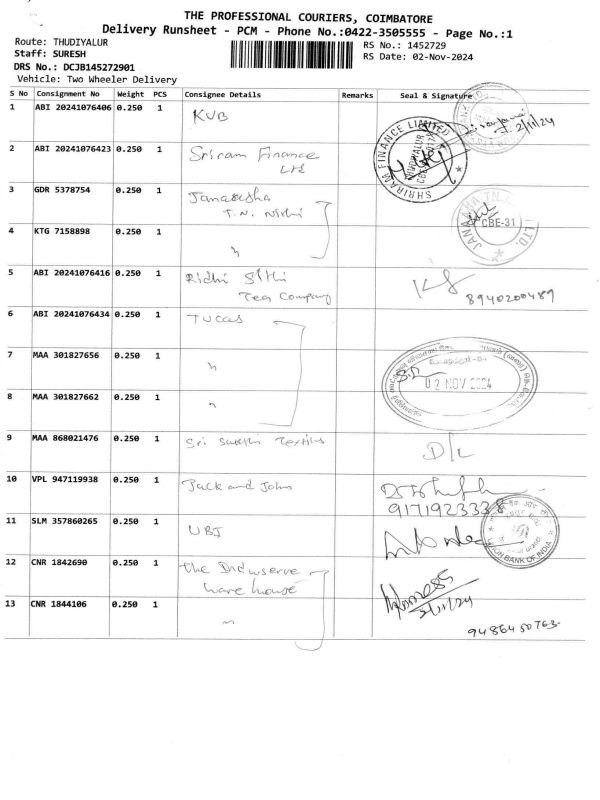 THE PROFESSIONAL COURIERS, COIMBATORE
Delivery Runsheet - PCM - Phone No.:0422-3505555 - Page No.:1
Route: THUDIYALUR
RS No.: 1452729
Staff: SURESH
RS Date: 02-Nov-2024
DRS No.: DCJB145272901
Vehicle: Two Wheeler Delivery
S No Consignment No Weight PCS Consignee Details Remarks Seal & Signature
1 ABI 20241076406 0.250 1 KVB
2/11/24
2 ABI 20241076423 0.250 1 Sriram Finance
Ltd
SHRIRAM FINANCE LIMITED
THUDIYALUR
3 GDR 5378754 0.250 1 Janaksha
T.N. Nidhi
4 KTG 7158898 0.250 1 "
CBE-31
LTD.
5 ABI 20241076416 0.250 1 Ridhi Sithi
Tea Company
8940200489
6 ABI 20241076434 0.250 1 TUCAS
7 MAA 301827656 0.250 1 "
02 NOV 2024
8 MAA 301827662 0.250 1 "
9 MAA 868021476 0.250 1 Sri Sakthi Textiles D/L
10 VPL 947119938 0.250 1 Jack and John
9171923338
11 SLM 357860265 0.250 1 UBI
UNION BANK OF INDIA
12 CNR 1842690 0.250 1 the Induserve
ware house
2/11/24
13 CNR 1844106 0.250 1 "
9486450763